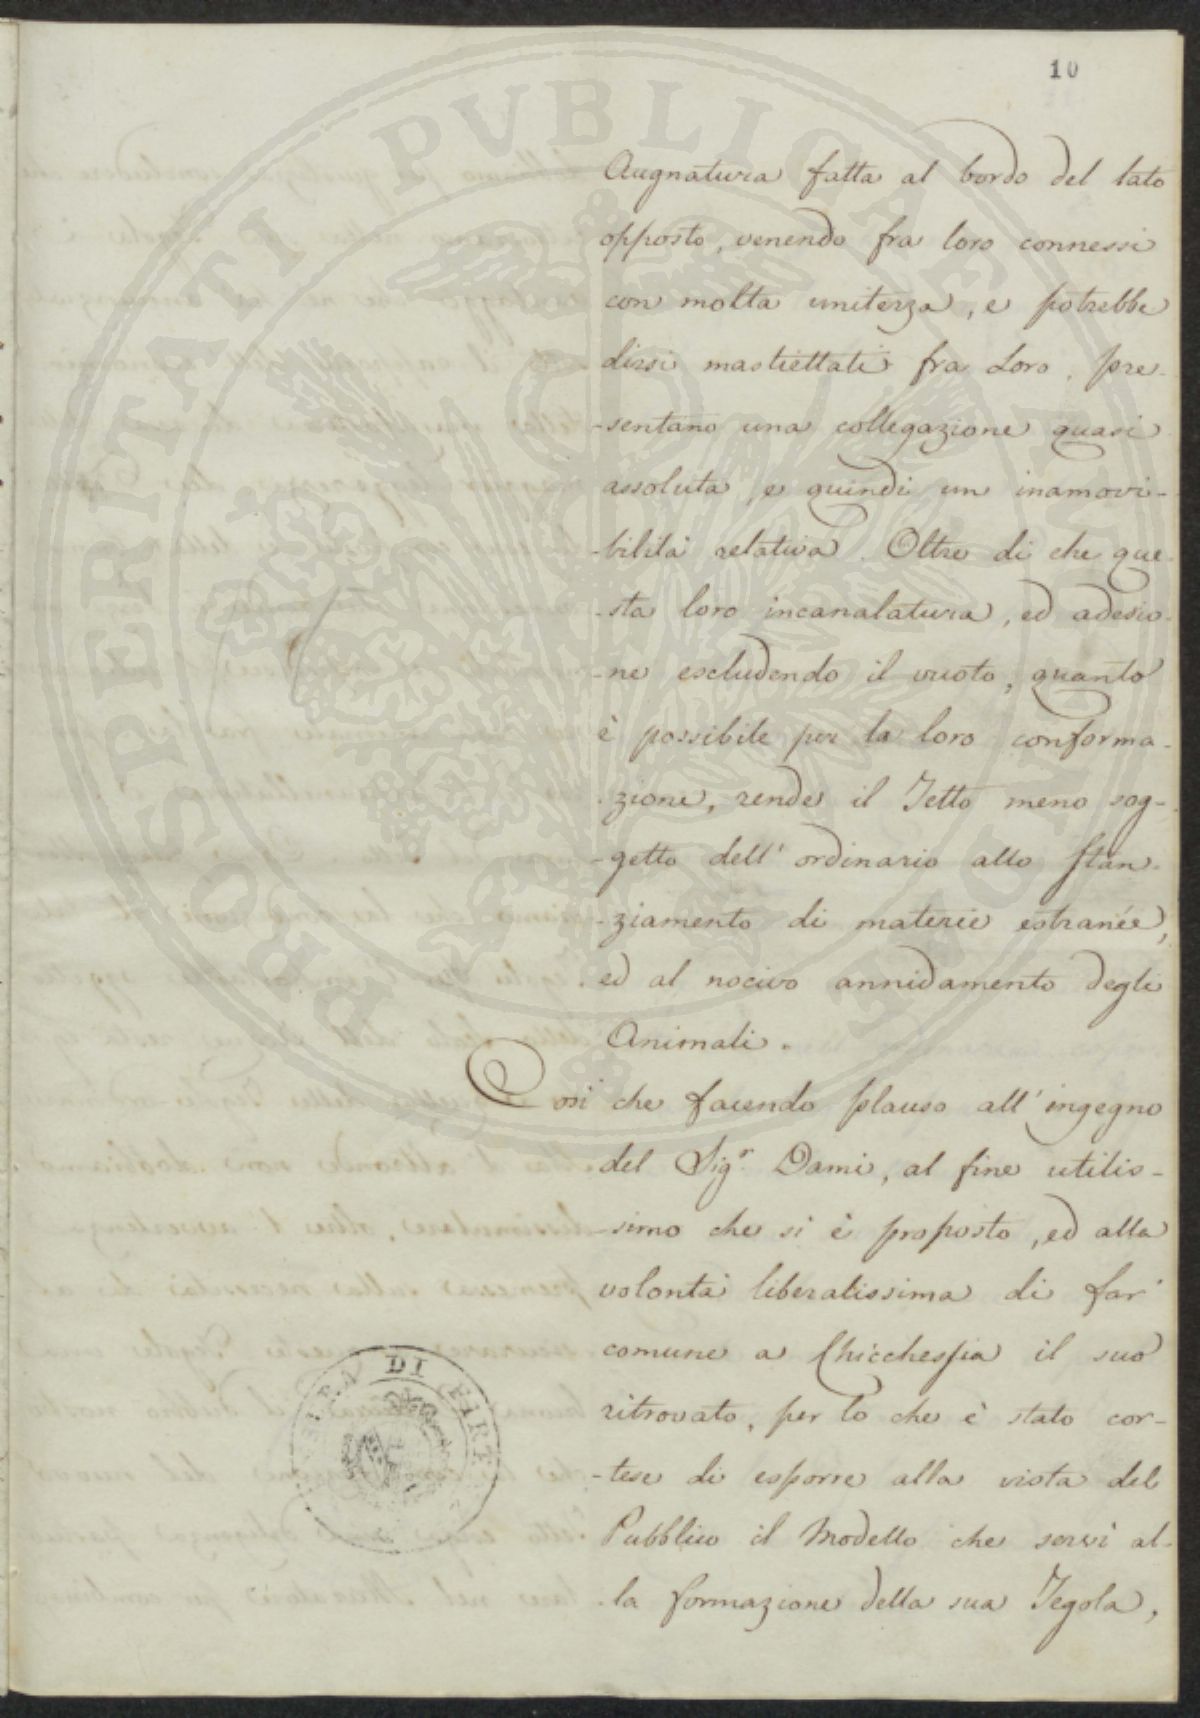 10
Augnatura fatta al bordo del lato
opposto, venendo fra loro connessi
con molta unitezza, e potrebbe
dirsi mastiettati fra Loro, pre-
-sentano una collegazione quasi
assoluta, e quindi un inamovi-
-bilità relativa. Oltre di che que-
-sta loro incanalatura, ed adesio-
-ne escludendo il vuoto, quanto
è possibile per la loro conforma-
-zione, rende il Tetto meno sog-
-getto dell' ordinario allo stan-
-ziamento di materie estranée,
ed al nocivo annidamento degli
Animali.
Così che facendo plauso all' ingegno
del Sigr. Dami, al fine utilis-
-simo che si è proposto, ed alla
volontà liberalissima di far
comune a Chicchessia il suo
ritrovato, per lo che è stato cor-
-tese di esporre alla vista del
Pubblico il Modello che servì al-
-la formazione della sua Tegola,
PROSPERITATI PVBLICAE AVGENDAE
DI